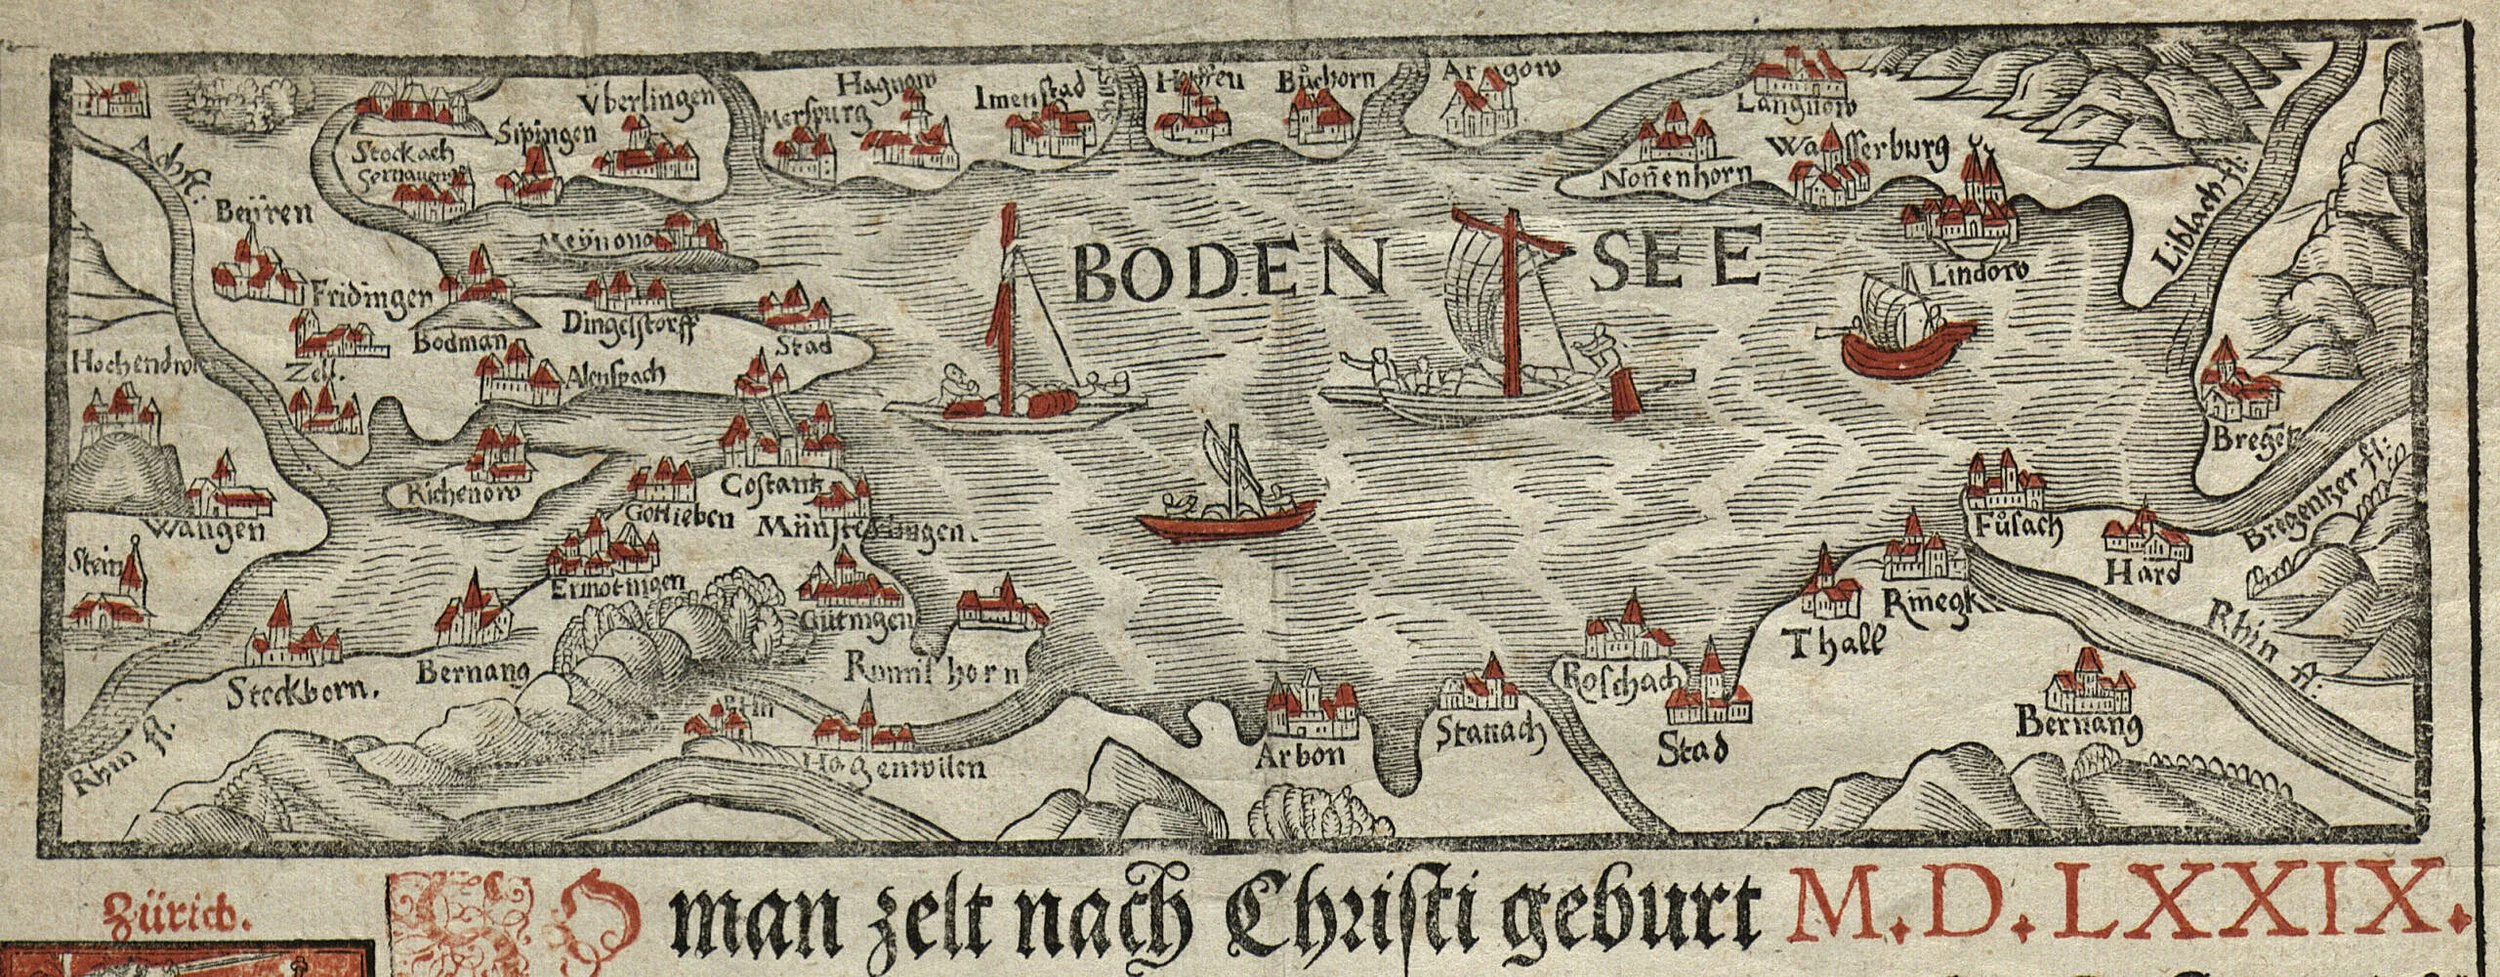 Achfl:
Stockach
Sernauen
Sipingen
Vberlingen
Merspurg
Hagnow
Imenstad
Hoffen
Bůchorn
Argow
Langnow
Noñenhorn
Wasserburg
Lindow
Liblach fl:
Beÿren
Fridingen
Bodman
Meÿnono
Dingelstorff
Stad
BODEN SEE
Hochendwiel
Zell.
Alenspach
Bregetz
Wangen
Richenow
Gotlieben
Costantz
Münsterlingen.
Fůsach
Hard
Bregentzer fl:
Stein
Ermotingen
Gütingen
Rhin fl:
Steckborn.
Bernang
Romishorn
Roschach
Thall
Rinegk
Bernang
Rhin fl.
Hagenwilen
Arbon
Stanach
Stad
Zürich.
SO man zelt nach Christi geburt M.D.LXXIX.